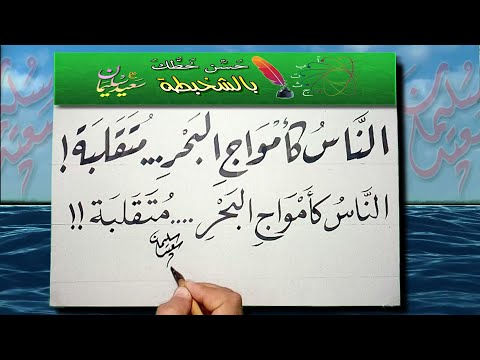 حسن خطك
بالشخبطة
سعيد سليمان
النَّاسُ كَأَمْوَاجِ البَحْرِ... مُتَقَلبَة !
النَّاسُ كَأَمْوَاجِ البَحْرِ .... مُتَقَلبَة !!
سعيد سليمان